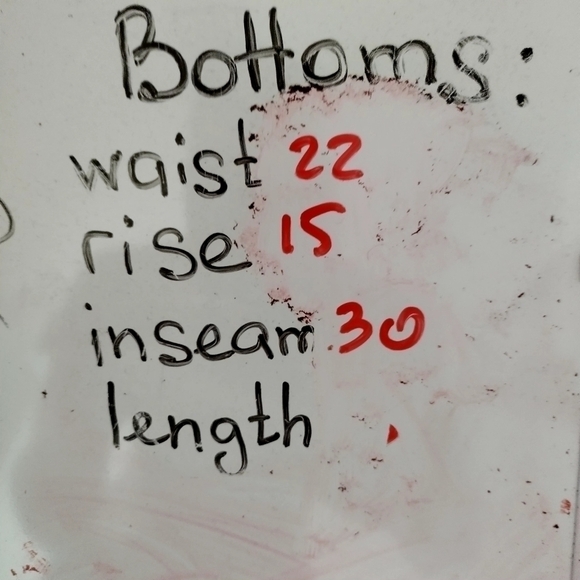 Bottoms:
waist 22
rise 15
inseam 30
length